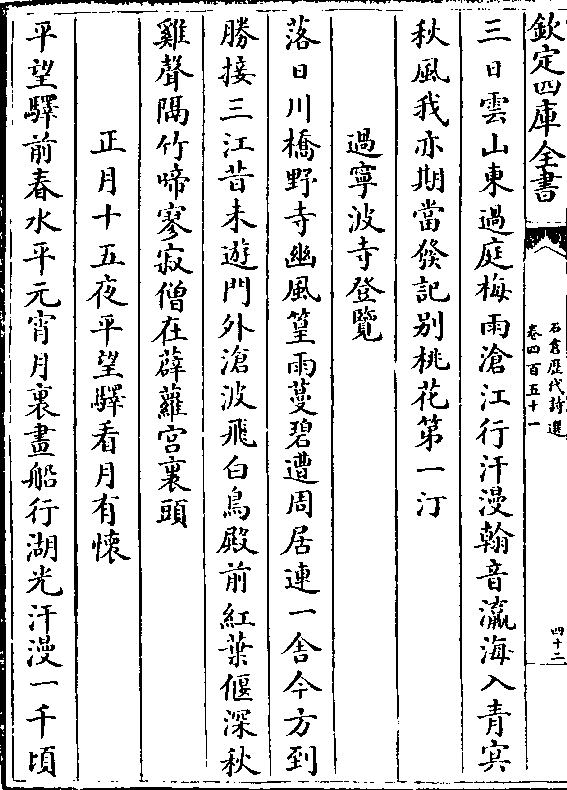 欽定四庫全書
石倉歷代詩選
卷四百五十一
四十二
三日雲山東過庭梅雨滄江行汗漫翰音瀛海入青冥
秋風我亦期當發記别桃花第一汀
過寧波寺登覽
落日川橋野寺幽風篁雨蔓碧遭周居連一舍今方到
勝接三江昔未遊門外滄波飛白鳥殿前紅葉偃深秋
雞聲隔竹啼寥寂僧在薜蘿宫裏頭
正月十五夜平望驛看月有懐
平望驛前春水平元宵月裏畫船行湖光汗漫一千頃